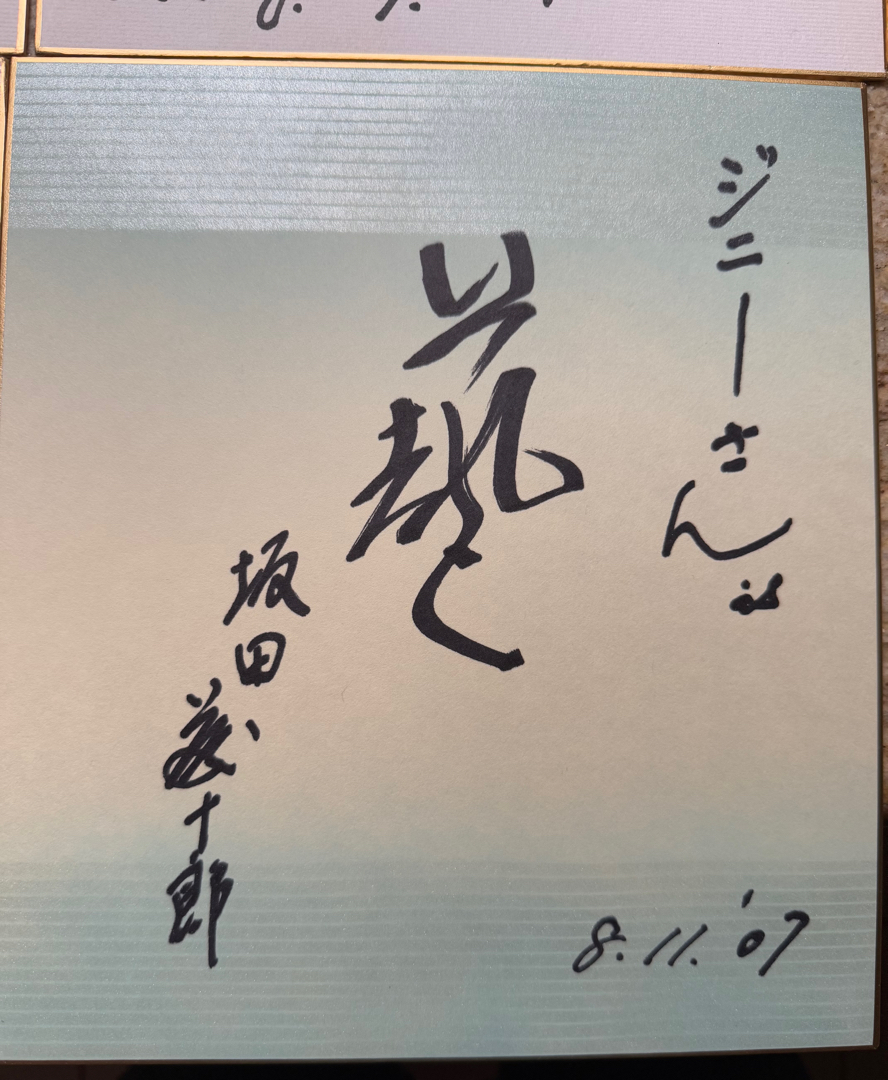 ジニーさん江
藝
坂田藤十郎
8.11.'07